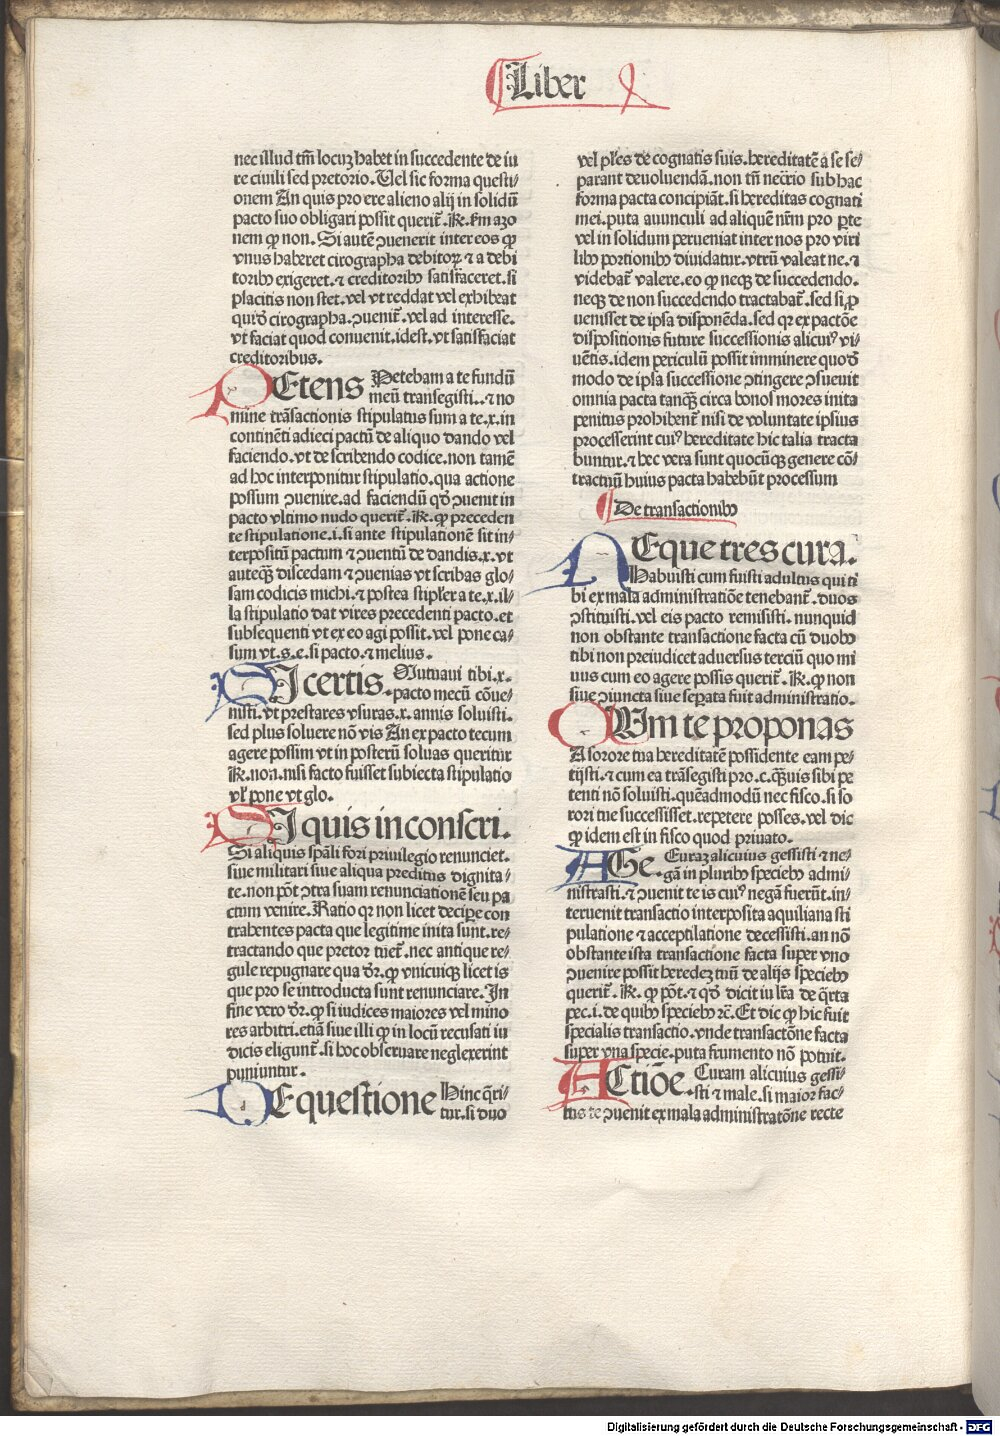 Liber
nec illud tm̄ locuꝫ habet in succedente de iu
re ciuili sed pretorio. Uel sic forma questi⸗
onem An quis pro ere alieno alij in solidū
pacto suo obligari possit querit᷑. R̄. fm azo
nem ꝙ non. Si autē ꝯuenerit inter eos ꝙ
vnus haberet cirographa debitoꝝ ⁊ a debi
toribꝰ exigeret. ⁊ creditoribꝰ satisfaceret. si
placitis non stet. vel vt reddat vel exhibeat
quedā cirographa. ꝯuenit᷑. vel ad interesse.
vt faciat quod conuenit. idest. vt satisfaciat
creditoribus.
PEtens Petebam a te fundū
meū transegisti. ⁊ no
mine trāsactionis stipulatus sum a te .x. in
continēti adieci pactū de aliquo dando vel
faciendo. vt de scribendo codice. non tamē
ad hoc interponitur stipulatio. qua actione
possum ꝯuenire. ad faciendū qd̄ ꝯuenit in
pacto vltimo nudo querit᷑. R̄. ꝙ preceden
te stipulatione .i. si ante stipulationē sit in⸗
terpositū pactum ⁊ ꝯuentū de dandis .x. vt
auteqꝫ discedam ⁊ ꝯuenias vt scribas glo⸗
sam codicis michi. ⁊ postea stipler a te .x. il⸗
la stipulatio dat vires precedenti pacto. et
subsequenti vt ex eo agi possit. vel pone ca⸗
sum vt .s. e. si pacto. ⁊ melius.
SI certis. Mutuaui tibi .x.
pacto mecū cōue⸗
nisti. vt prestares vsuras .x. annis soluisti.
sed plus soluere nō vis An ex pacto tecum
agere possim vt in posterū soluas queritur
R̄. non. nisi facto fuisset subiecta stipulatio
vl̓ pone vt glo.
SI quis in conscri.
Si aliquis spāli fori priuilegio renunciet.
siue militari siue aliqua preditus dignita⸗
te. non pōt ꝯtra suam renunciationē seu pa
ctum venire. Ratio qꝛ non licet decipe con
trahentes pacta que legitime inita sunt. re⸗
tractando que pretoꝛ tuet᷑. nec antique re⸗
gule repugnare qua dꝛ. ꝙ vnicuiqꝫ licet is
que pro se introducta sunt renunciare. In
fine vero dꝛ. ꝙ si iudices maiores vel mino
res arbitri. etiā siue illi ꝙ in locū recusati iu
dicis eligunt᷑. si hoc obseruare neglexerint
puniuntur.
DE questione Hinc q̄ri⸗
tur. si duo
vel pl̓es de cognatis suis. hereditatē a se se⸗
parant deuoluendā. non tn̄ nec̄rio sub hac
forma pacta concipiāt. si hereditas cognati
mei. puta auunculi ad aliquē nr̄m pro ꝑte
vel in solidum perueniat inter nos pro viri
libꝰ portionibꝰ diuidatur. vtrū valeat ne. ⁊
videbat᷑ valere. eo ꝙ neqꝫ de succedendo.
neqꝫ de non succedendo tractabat᷑. sed si ꝓ
uenisset de ipsa disponēda. sed qꝛ ex pactōe
dispositionis future successionis alicuiꝰ vi⸗
uētis. idem periculū possit imminere quod
modo de ipsa successione ꝯtingere ꝯsueuit
omnia pacta tanqꝫ circa bonos mores inita
penitus prohibent᷑ nisi de voluntate ipsius
processerint cuiꝰ hereditate hic talia tracta
buntur. ⁊ hec vera sunt quocūqꝫ genere cō⸗
tractuū huius pacta habebūt processum
De transactionibꝰ
AEque tres cura.
Habuisti cum fuisti adultus qui ti
bi ex mala administratiōe tenebant᷑. duos
ꝯstituisti. vel eis pacto remisisti. nunquid
non obstante transactione facta cū duobꝰ
tibi non preiudicet aduersus terciū quo mi
nus cum eo agere possis querit᷑. R̄. ꝙ non
siue ꝯiuncta siue seꝑata fuit administratio.
QUm te proponas
A sorore tua hereditatē possidente eam pe⸗
tijsti. ⁊ cum ea trāsegisti pro .c. qꝫuis sibi pe
tenti nō soluisti. quēadmodū nec fisco. si so
rori tue successisset. repetere posses. vel dic
ꝙ idem est in fisco quod priuato.
AGe. Curaꝫ alicuius gessisti ⁊ ne⸗
gā in pluribꝰ speciebꝰ admi⸗
nistrasti. ⁊ ꝯuenit te is cuiꝰ negā fuerūt. in⸗
teruenit transactio interposita aquiliana sti
pulatione ⁊ acceptilatione decessisti. an nō
obstante ista transactione facta super vno
ꝯuenire possit heredeꝫ tuū de alijs speciebꝰ
querit᷑. R̄. ꝙ pōt. ⁊ qd̄ dicit iu l̓ra de q̄rta
pec. i. de quibꝰ speciebꝰ ⁊c̄. Et dic ꝙ hic fuit
specialis transactio. vnde transactōne facta
super vna specie. puta frumento nō potuit.
ACtiōe. Curam alicuius gessi⸗
sti ⁊ male. si maior fac⸗
tus te ꝯuenit ex mala administratōne recte
Digitalisierung gefördert durch die Deutsche Forschungsgemeinschaft - DFG